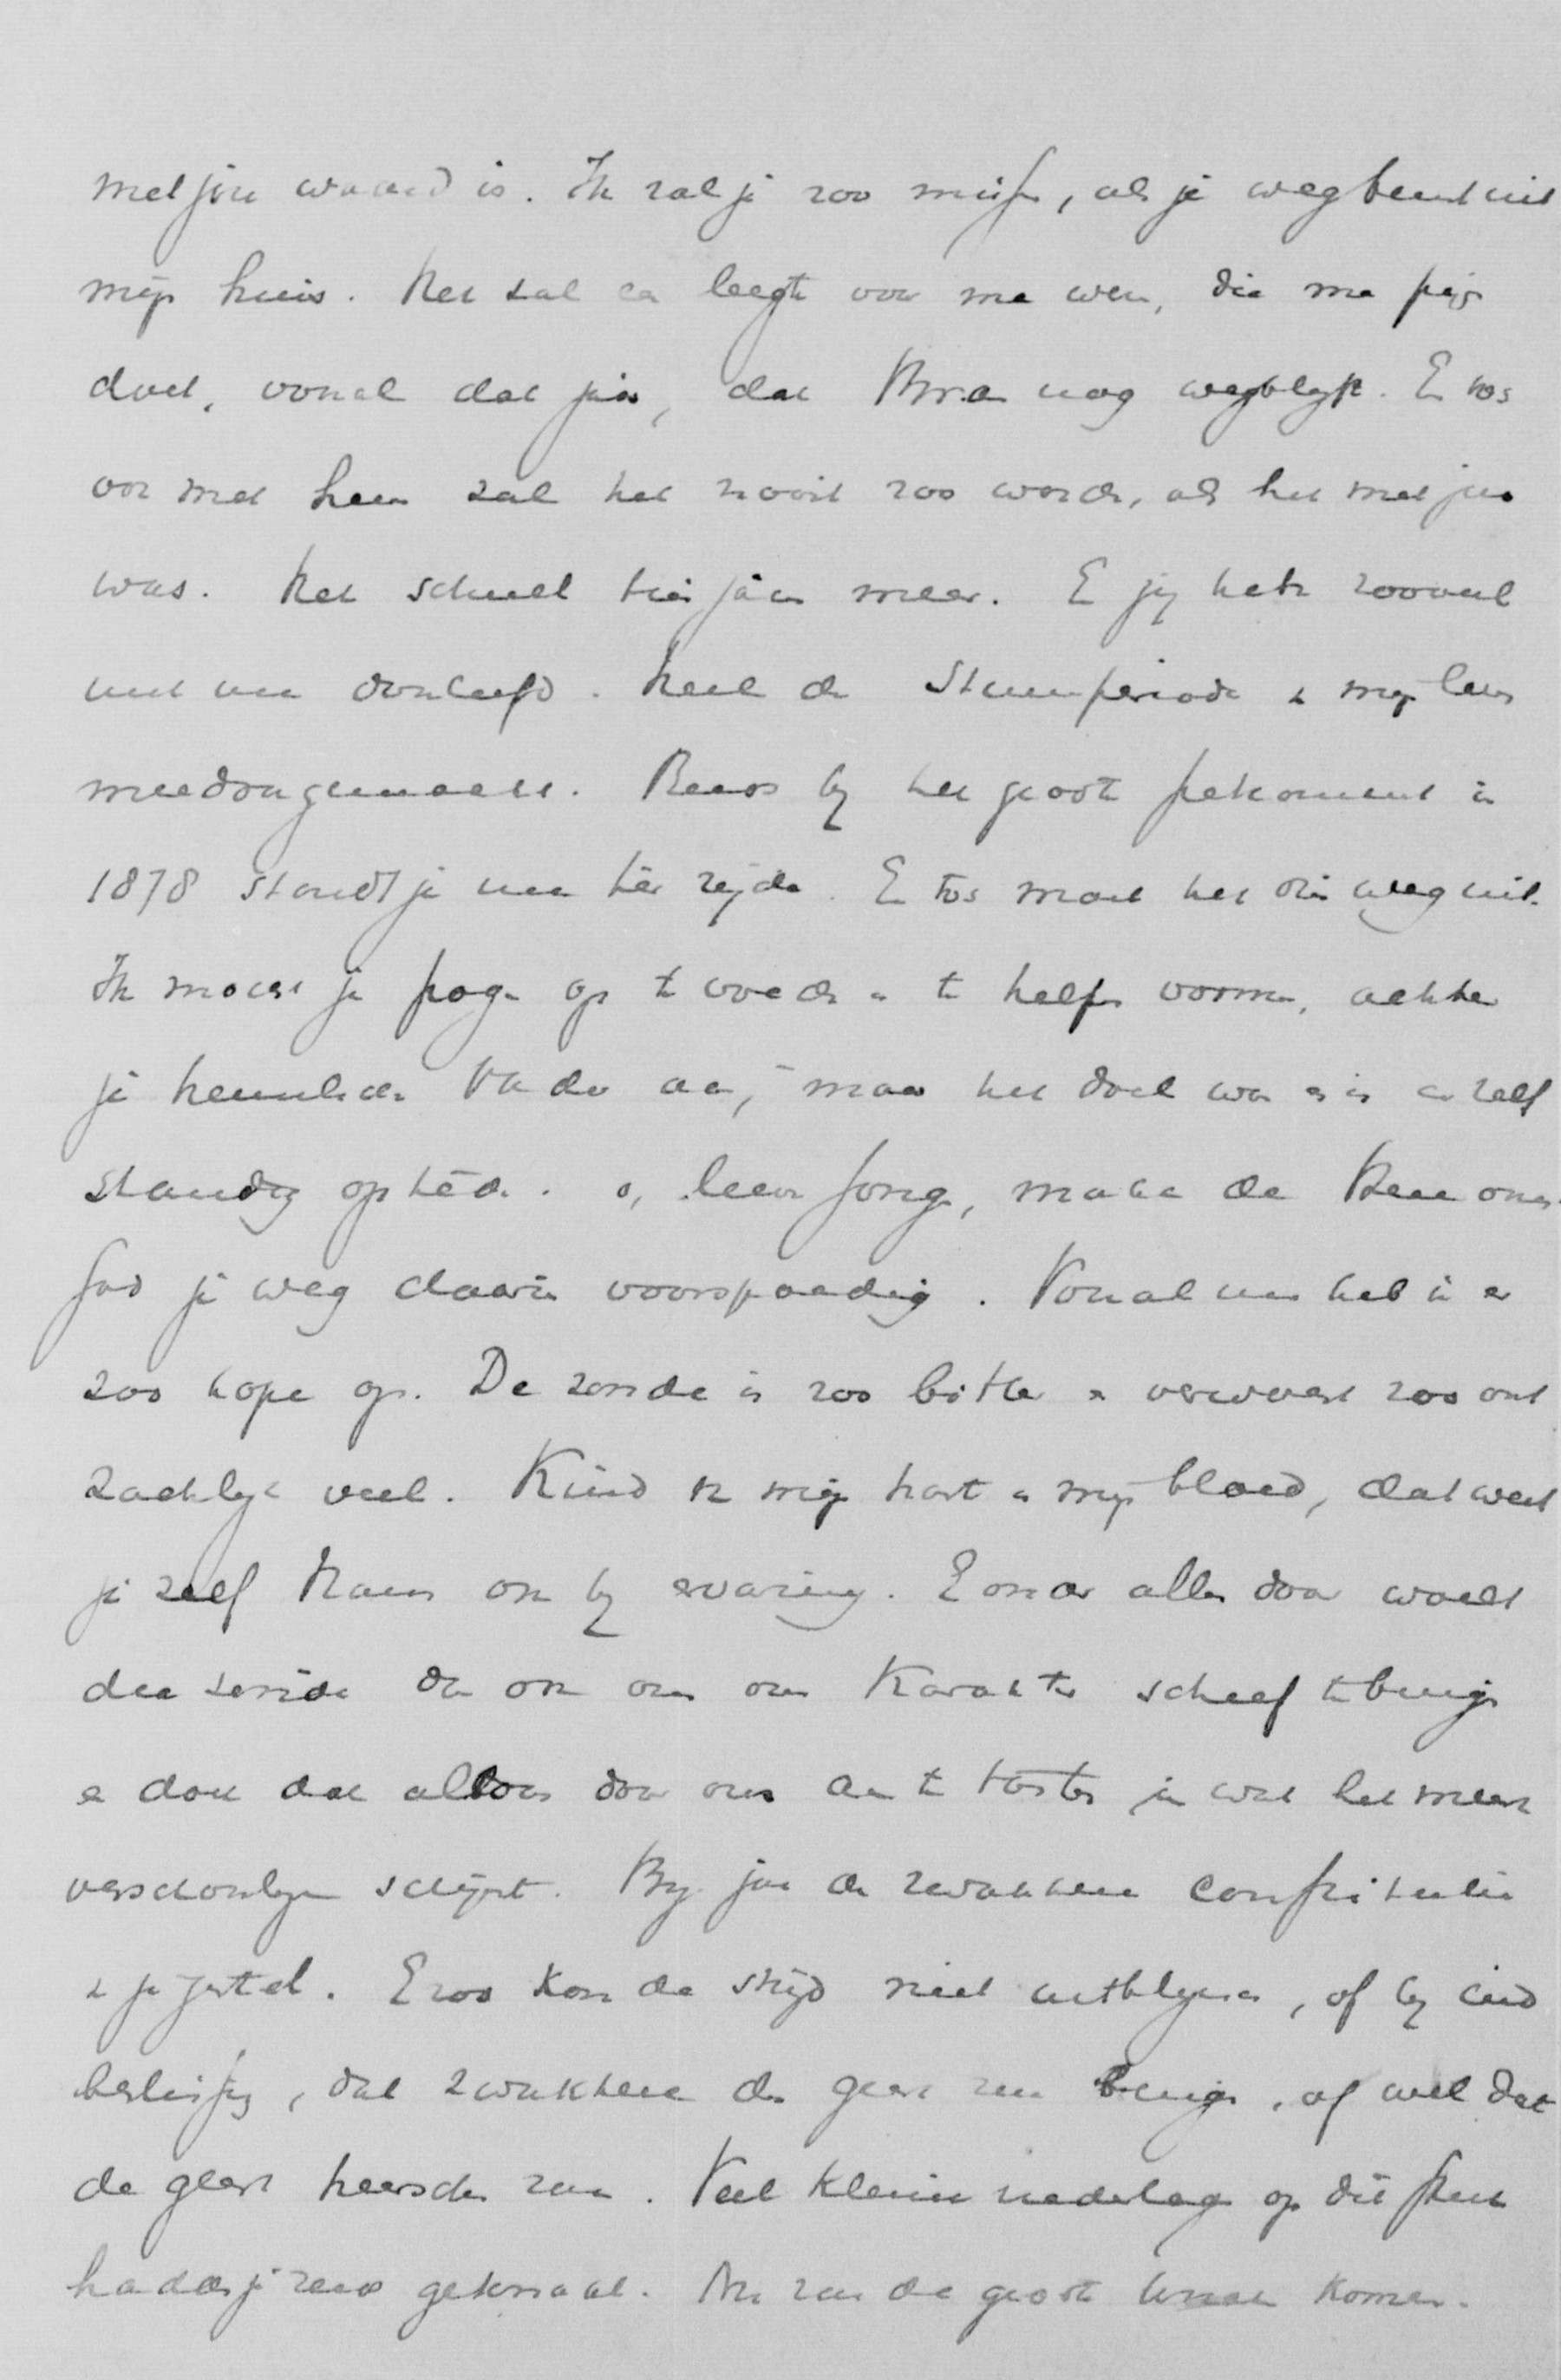 met jou waard is. Ik zal je zoo missen, als je weg bent uit
mijn huis. Het zal een leegte voor me wezen, die me pijn
doet, vooral dat jaar, dat Bram nog wegblijft. En toch
ook met hem zal het nooit zoo worden, als het met jou
was. Het scheelt tien jaar meer. En jij hebt zooveel
met me doorleefd. Heel de Sturmperiode in mijn leven
meedoorgemaakt. Reeds bij het groot petionnement in
1878 stondt je me ter zijde. En toch moet het dien weg uit.
Ik mocht je pogen op te voeden en te helpen vormen, achter
je hemelschen Vader aan, maar het doel was en is een zelf
standig optreden. O, lieve jongen, make de Heere onze
God je weg daarin voorspoedig. Vooral nu heb ik er
zoo hope op. De zonde is zoo bitter en verwoest zoo ont
zachlijk veel. Kind van mijn hart en mijn bloed, dat weet
je zelf ook bij ervaring. En onder alles door woelt
die zonde dan om ons ons karakter scheef te buigen
en doet dat altoos door ons aan te tasten in wat het meest
verschoonlijk schijnt. Bij jou de zwakkere constitutie
en je gestel. En zoo kon de strijd niet uitblijven, of bij eind
beslissing, dat zwakkere den geest zou buigen, of wel dat
de geest heerschen zou. Veel kleine nederlagen op dit punt
hadden je reeds geknakt. Nu zou de groote komen.